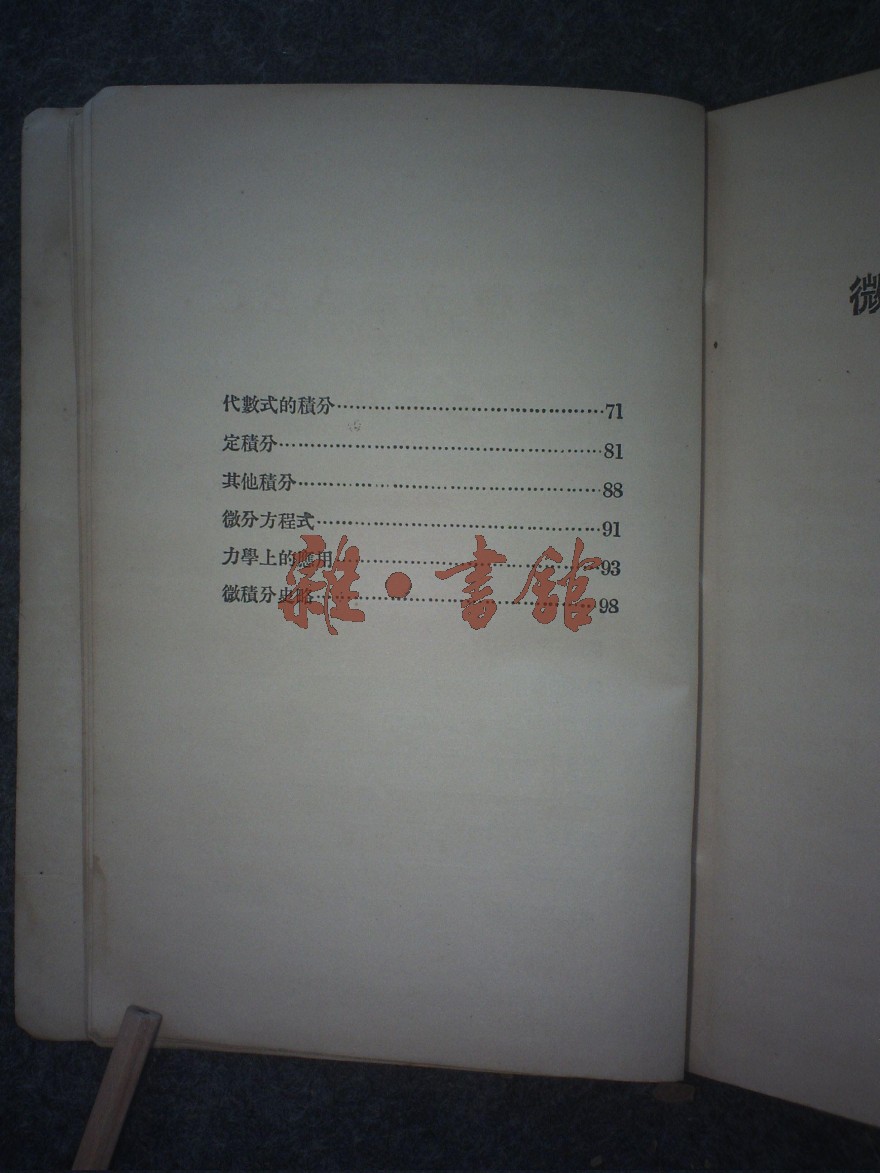 代數式的積分……………………………………71
定積分……………………………………………81
其他積分…………………………………………88
微分方程式………………………………………91
力學上的應用……………………………………93
微積分史略………………………………………98
雜·書館
微